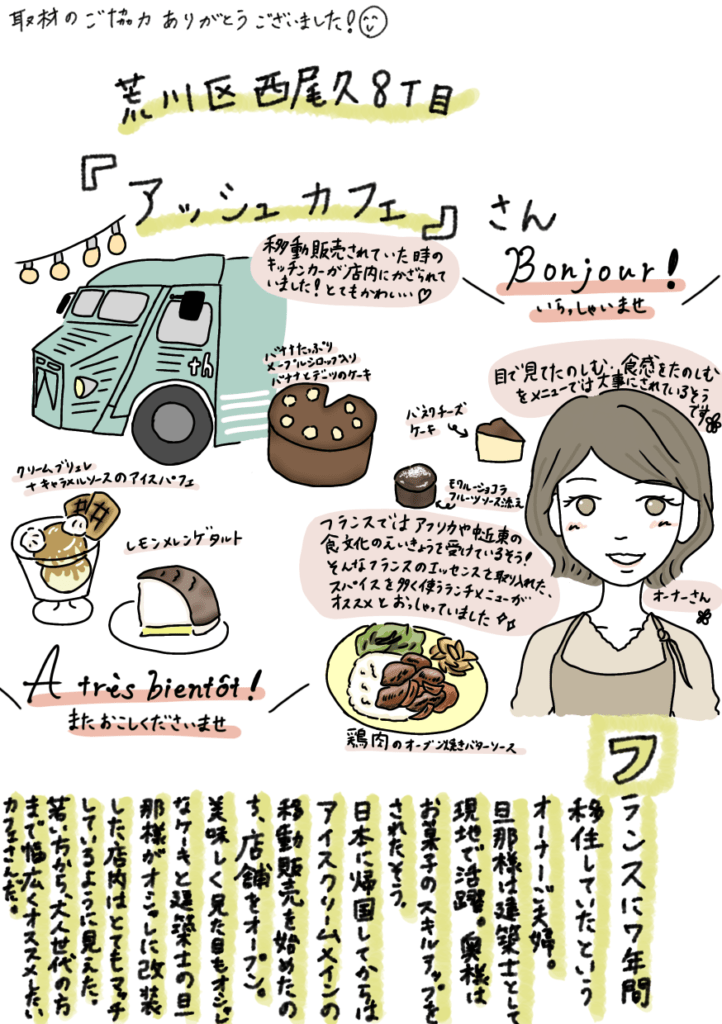 取材のご協力ありがとうございました!
荒川区西尾久8丁目
『アッシュカフェ』さん
移動販売されていた時の
キッチンカーが店内にかざられて
いました!とてもかわいい♡
Bonjour!
いらっしゃいませ
th
バナナたっぷり
メープルシロップ入り
バナナとデーツのケーキ
目で見てたのしむ・食感をたのしむ
をメニューでは大事にされているそう
です
バスクチーズ
ケーキ
モワルーショコラ
フルーツソース添え
クリームブリュレ
+キャラメルソースのアイスパフェ
レモンメレンゲタルト
フランスではアフリカや中近東の
食文化のえいきょうを受けているそう!
そんなフランスのエッセンスを取り入れた、
スパイスを多く使うランチメニューが
オススメとおっしゃっていました
オーナーさん
A très bientôt!
またおこしくださいませ
鶏肉のオーブン焼きバターソース
フランスに7年間
移住していたという
オーナーご夫婦。
旦那様は建築士として
現地で活躍。奥様は
お菓子のスキルアップを
されたそう。
日本に帰国してからは
アイスクリームメインの
移動販売を始めたの
ち、店舗をオープン。
美味しく見た目もオシャレ
なケーキと建築士の旦
那様がオシャレに改装
した店内はとてもマッチ
しているように見えた。
若い方から、大人世代の方
まで幅広くオススメしたい
カフェさんだ。